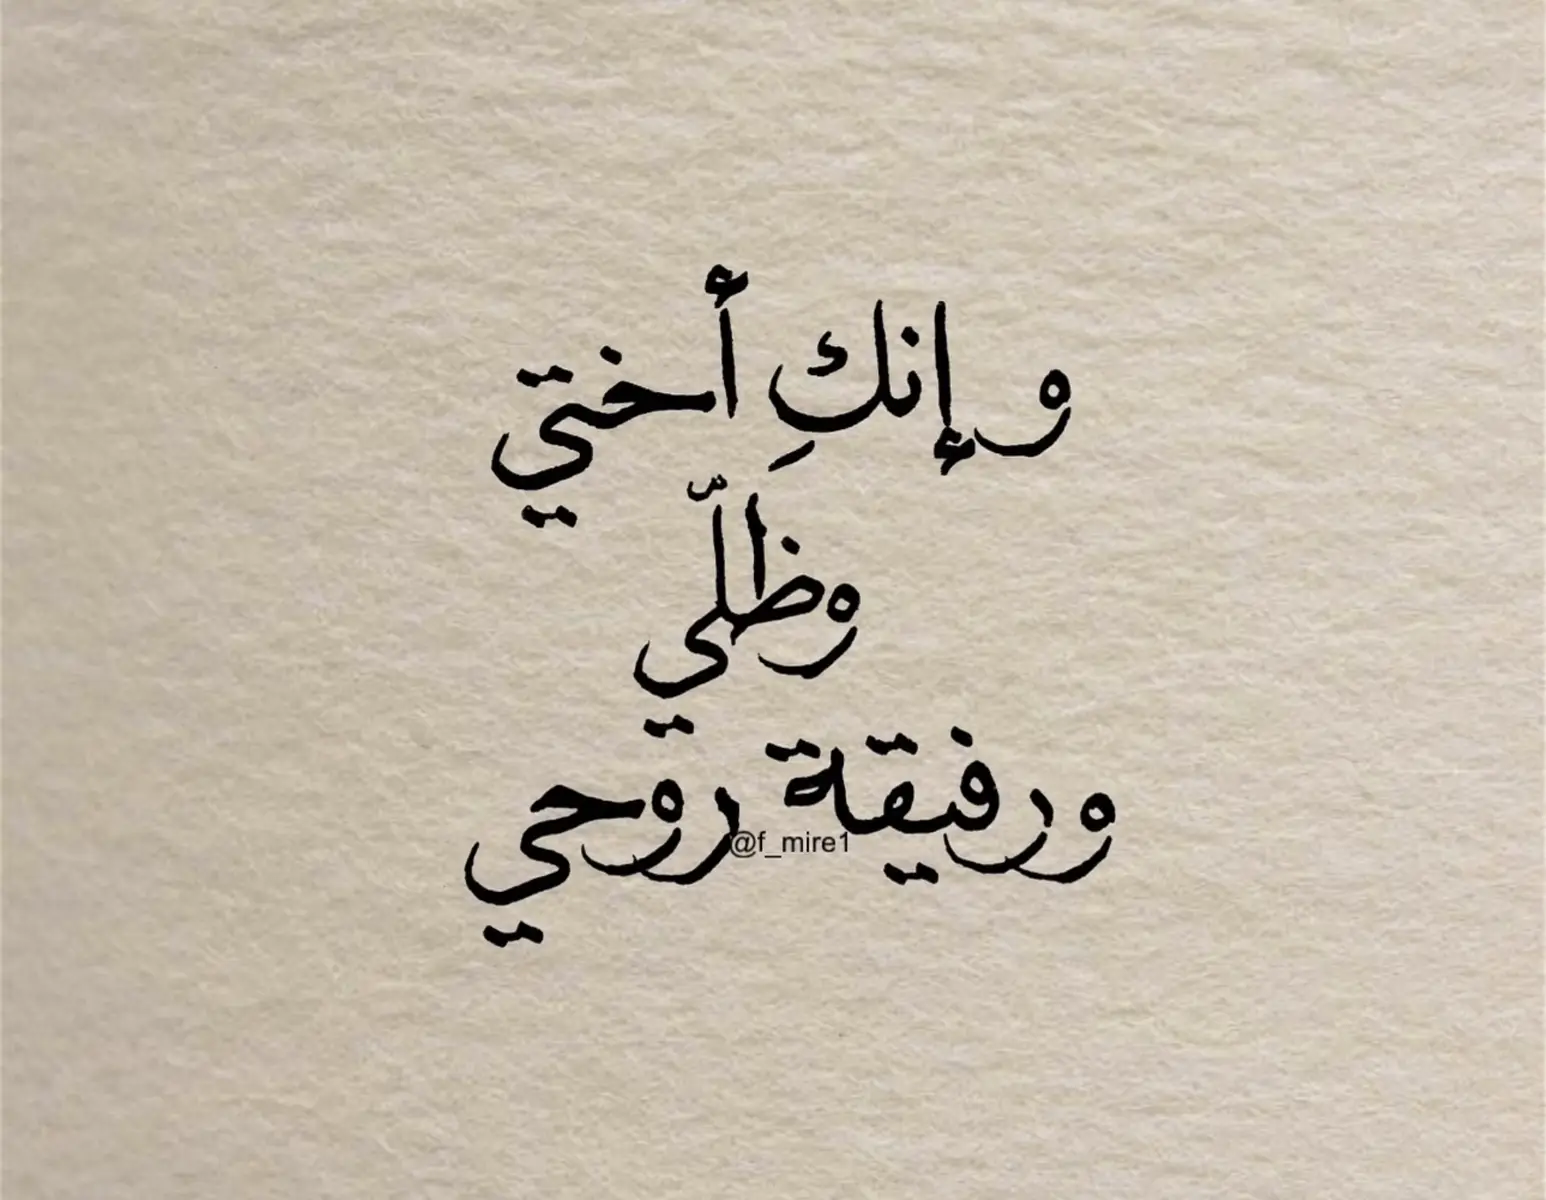 وإنكِ أختي
وظلّي
ورفيقة روحي
@f_mire1